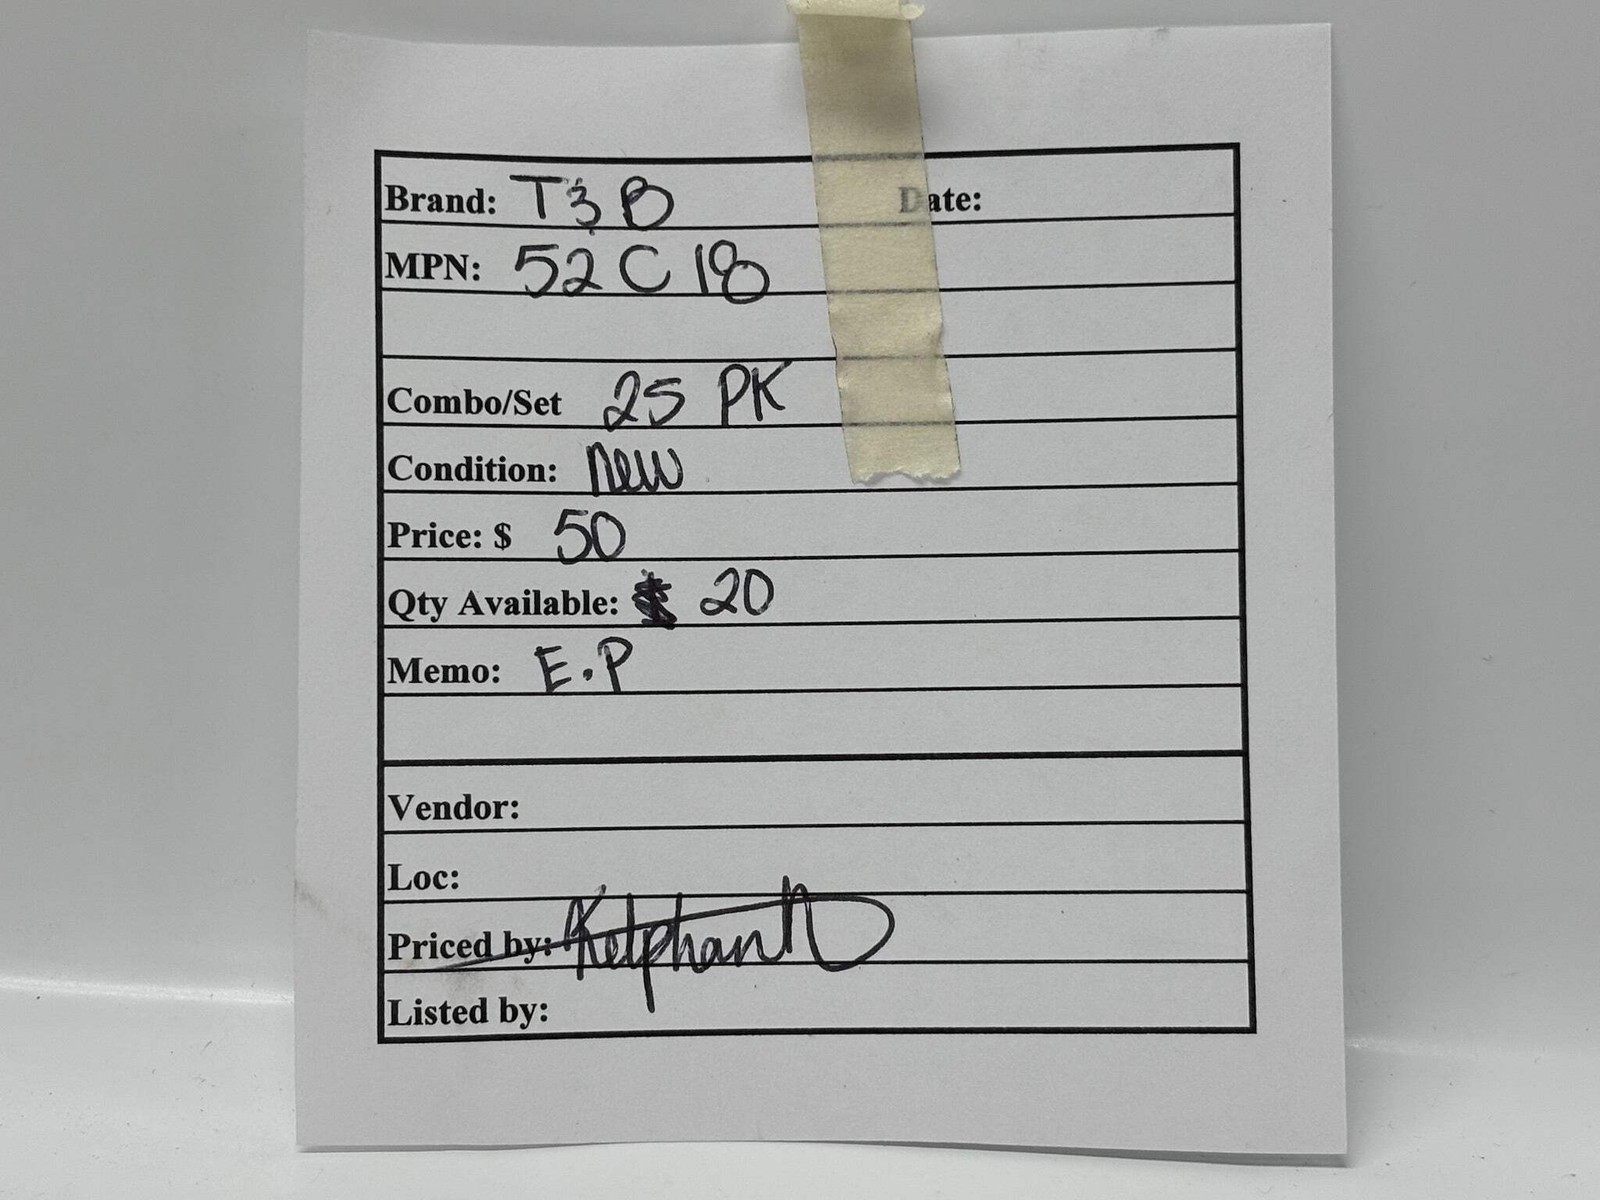 Brand: T & B Date:
MPN: 52 C 18
Combo/Set 25 PK
Condition: New
Price: $ 50
Qty Available: 20
Memo: E.P
Vendor:
Loc:
Priced by:
Listed by: